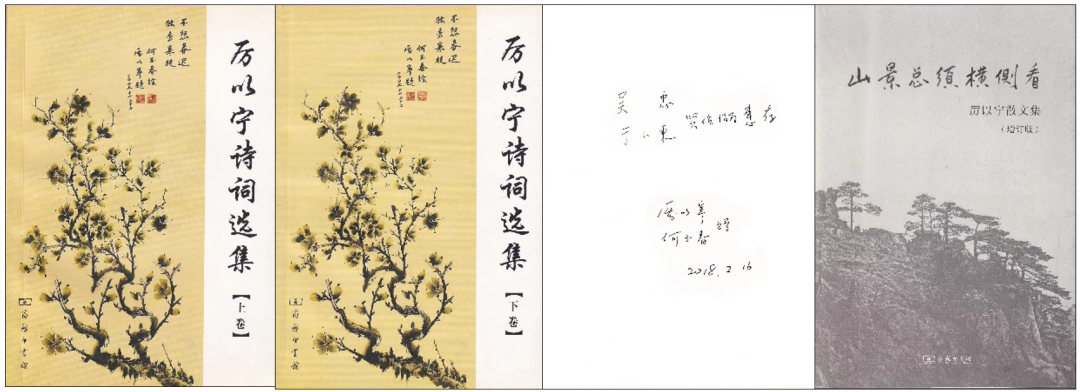 不愁春迟
独秀寒枝
何玉春绘
厉以宁题
厉以宁诗词选集
【上卷】
商务印书馆
不愁春迟
独秀寒枝
何玉春绘
厉以宁题
厉以宁诗词选集
【下卷】
商务印书馆
吴忠
于小東
贤伉俪惠存
厉以寧
何玉春
2018.2.16
山景总须横侧看
厉以宁散文集
(增订版)
商务印书馆